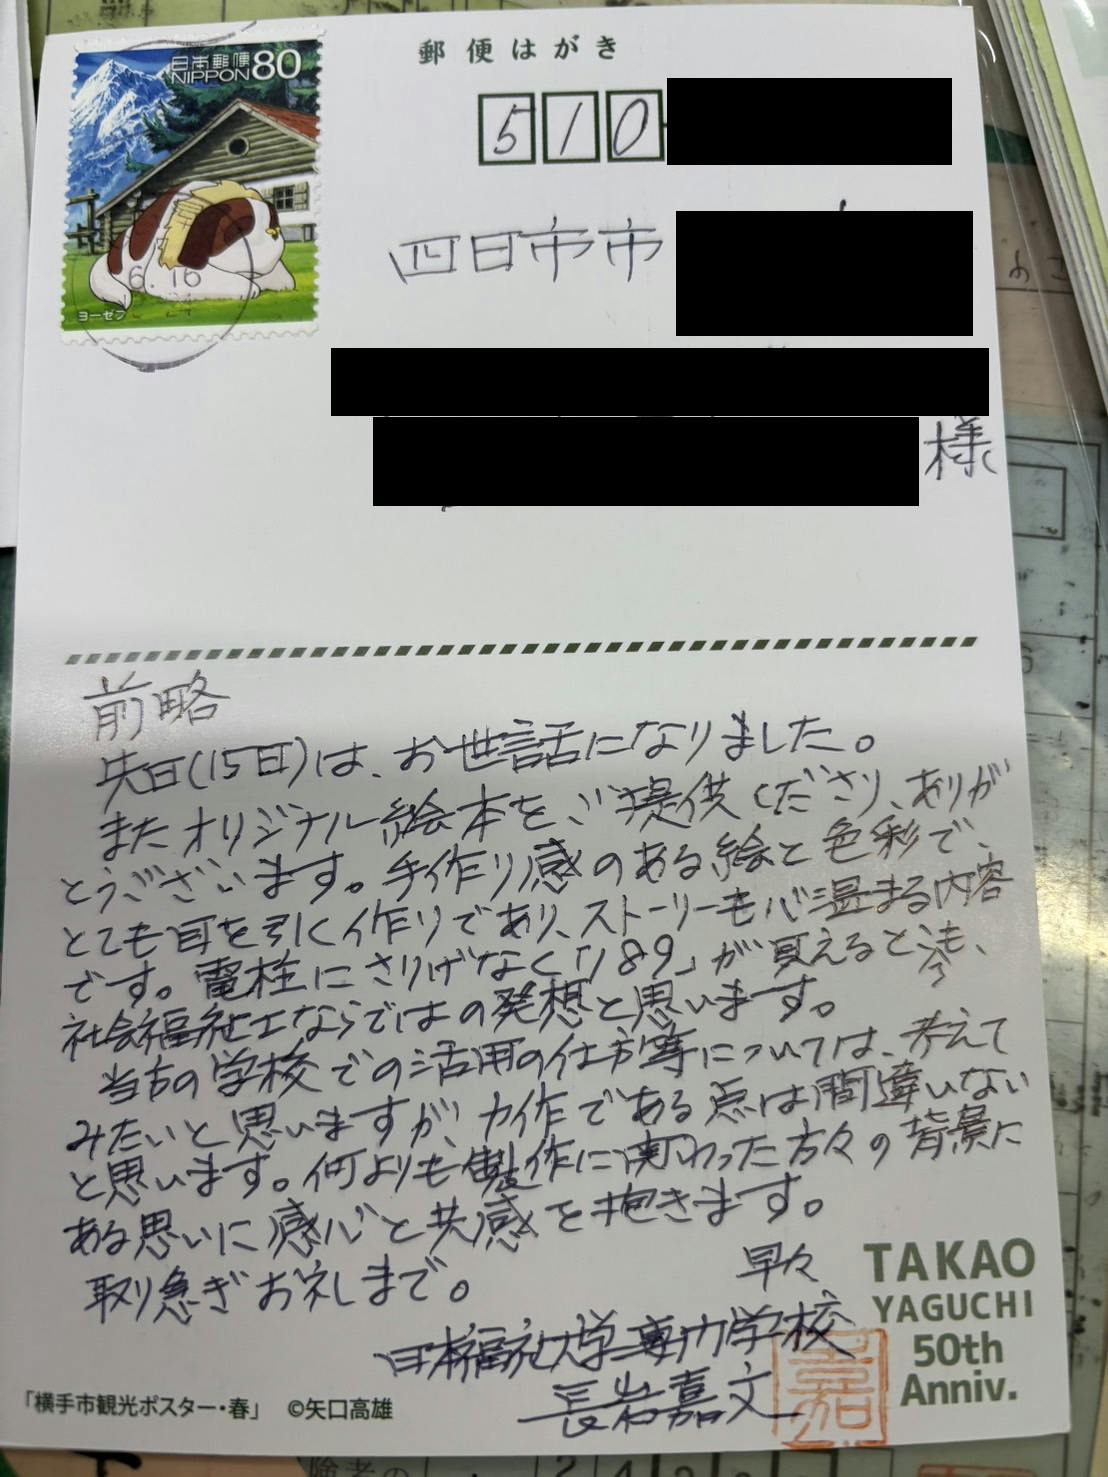 日本郵便
NIPPON 80
ヨーゼフ
6.16
24
郵便はがき
510
四日市市
様
前略
先日(15日)は、お世話になりました。
またオリジナル絵本をご提供くださり、ありが
とうございます。手作り感のある絵と色彩で、
とても目を引く作りであり、ストーリーも心温まる内容
です。電柱にさりげなく「189」が見えるところも、
社会福祉士ならではの発想と思います。
当方の学校での活用の仕方等については、考えて
みたいと思いますが、力作である点は間違いない
と思います。何よりも製作に関わった方々の背景に
ある思いに感心と共感を抱きます。
取り急ぎお礼まで。
早々
日本福祉大学専門学校
長岩嘉文
嘉
TAKAO
YAGUCHI
50th
Anniv.
「横手市観光ポスター・春」 ©矢口高雄